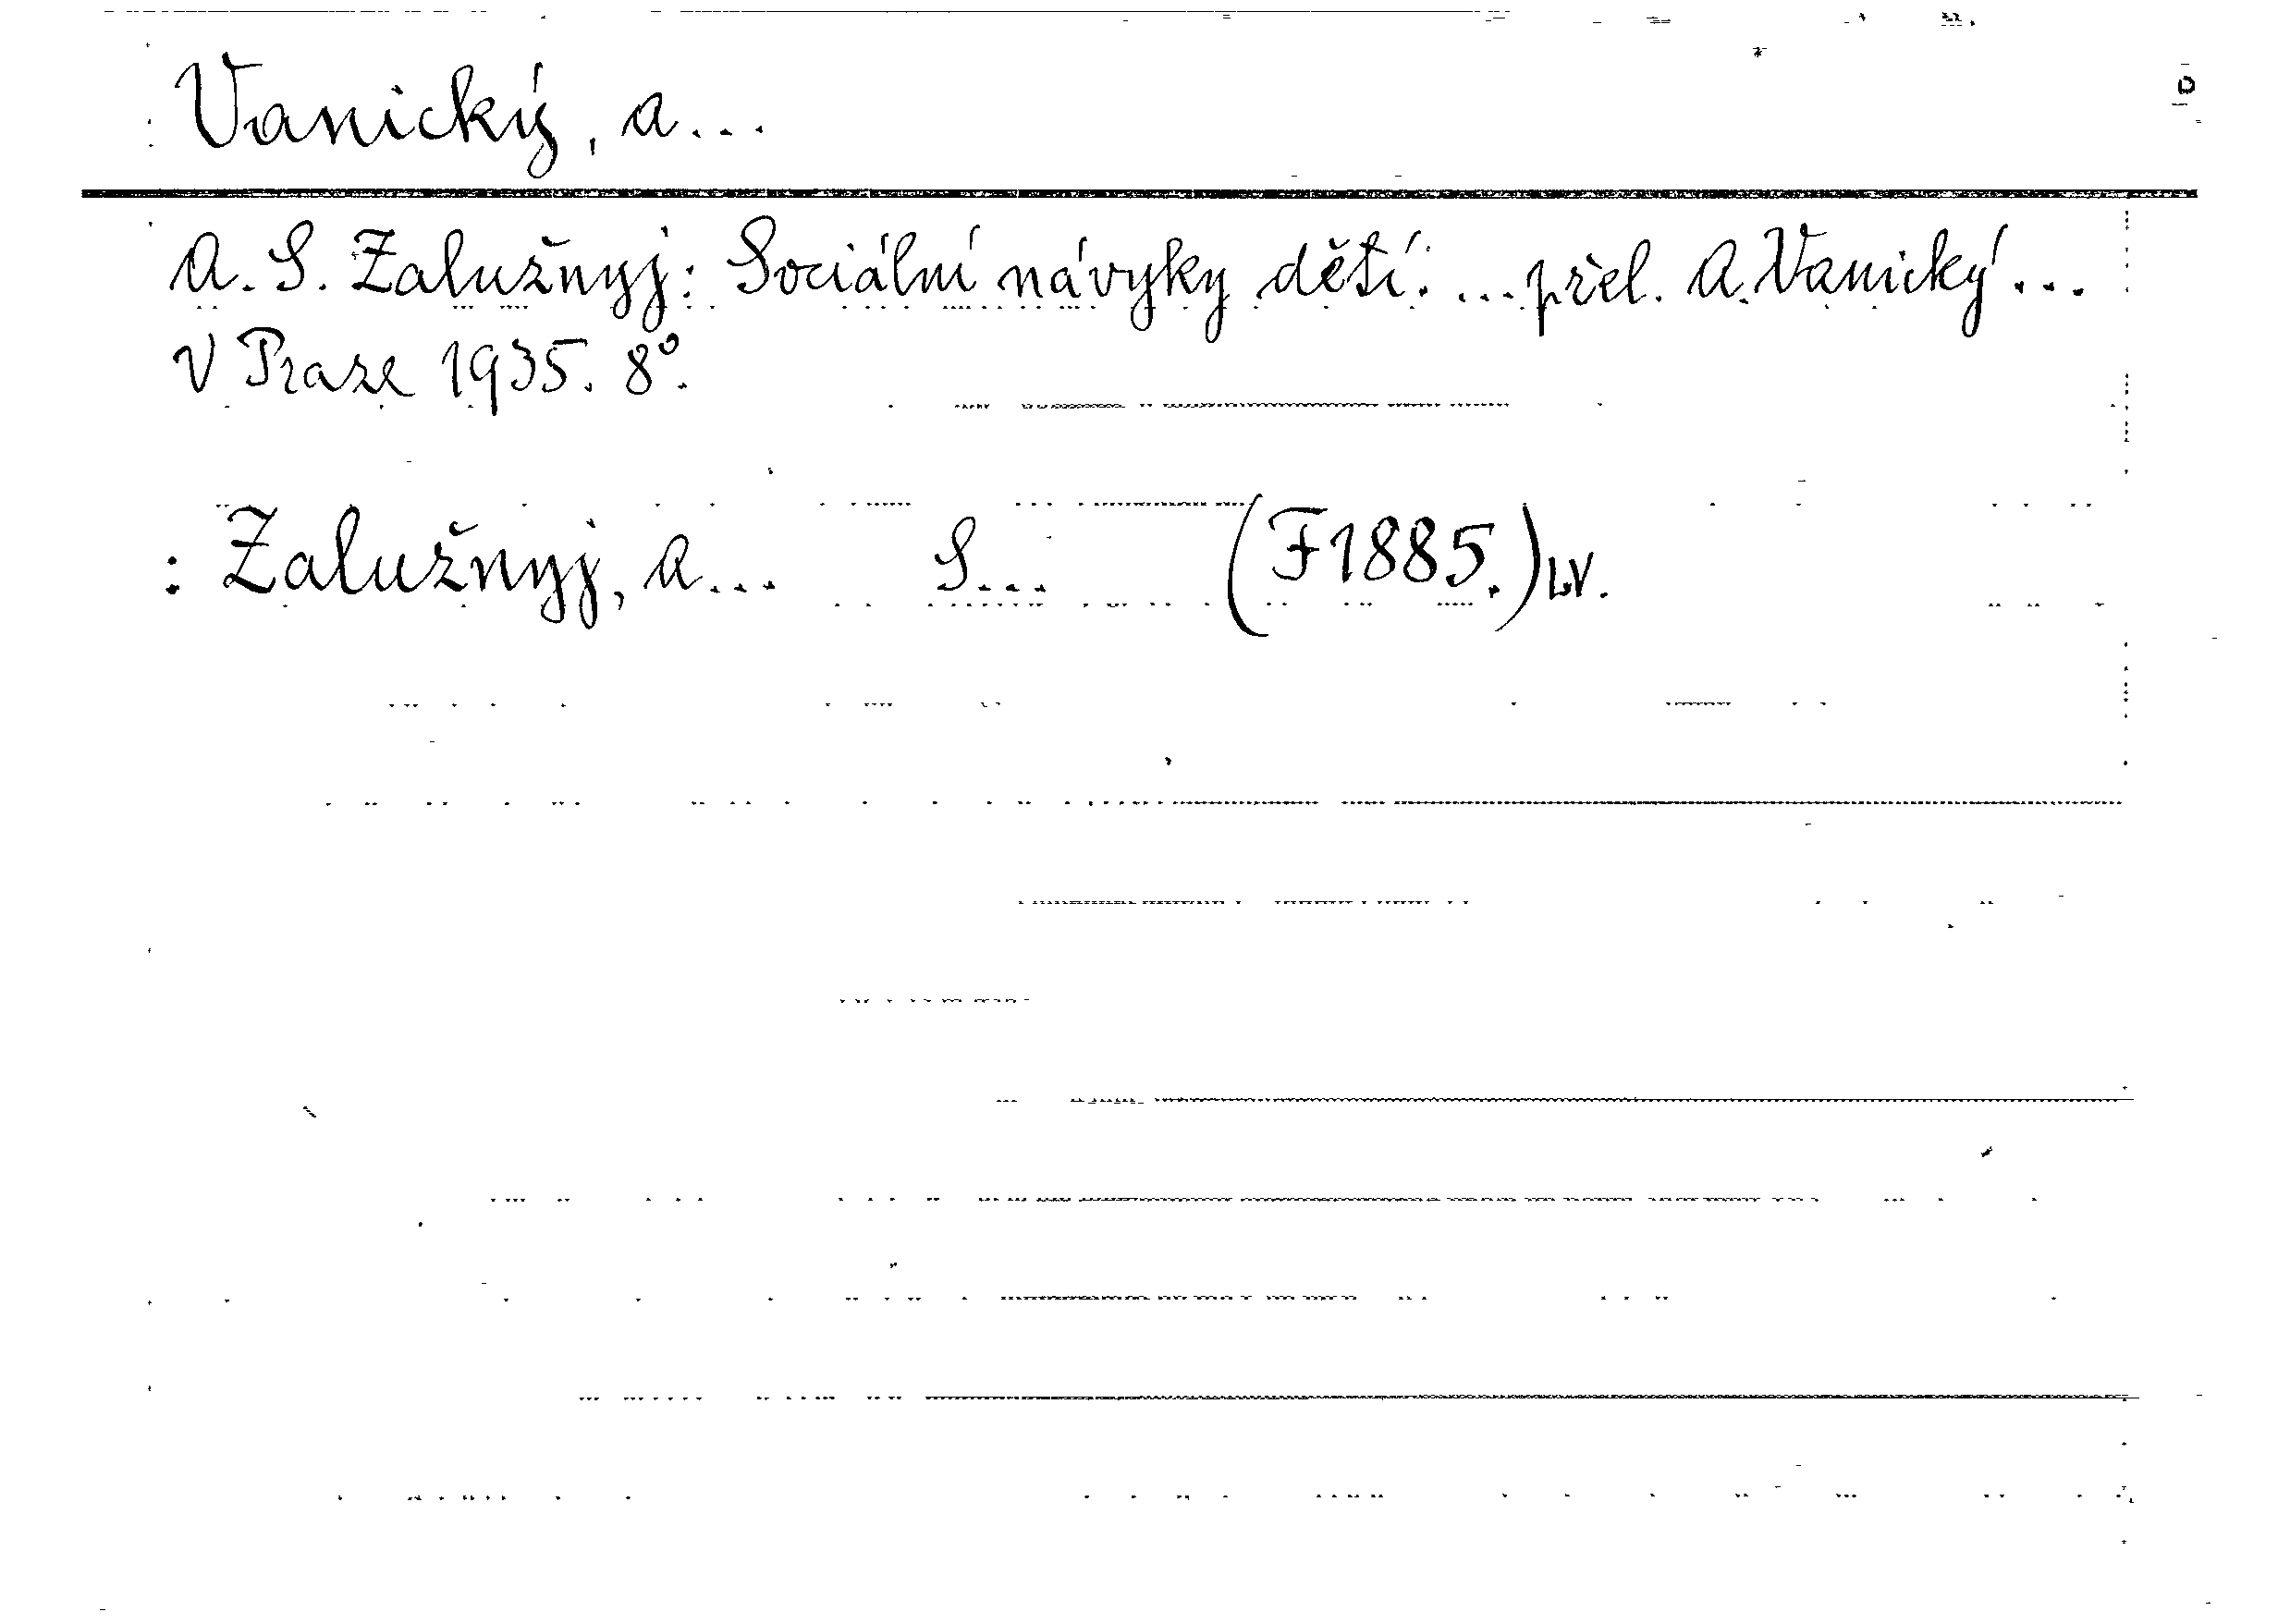 Vanický, A...
A. S. Zalužnyj: Sociální návyky dětí. ... přel. A. Vanický ...
V Praze 1935. 8°.
: Zalužnyj, A... S... (F1885.) LV.